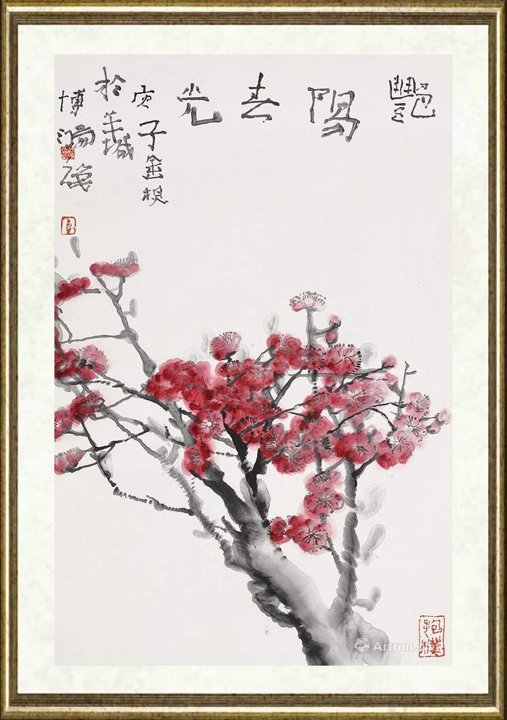 艷陽春光
庚子金秋
於羊城
博
Artron